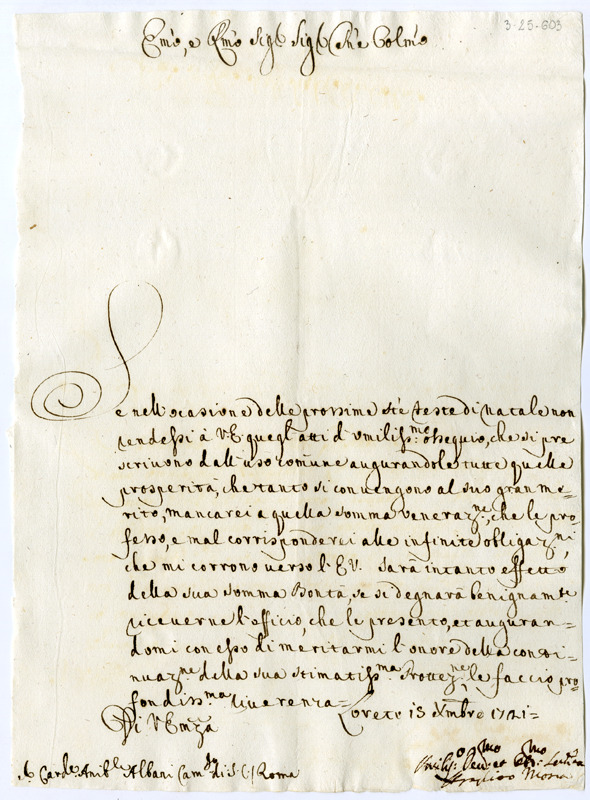 3-25-603
Em̃o, e Rm̃o Sigr Sigr Prñe Colmo
Se nell'ocasione delle prossime Ste feste di Natale non
rendessi à V.E quegl'atti d'umilissmo ossequio, che si pre
scrivono dall'uso comune augurandole tutte quelle
prosperità, che tanto si convengono al suo gran me=
rito, mancarei a quella somma venerazne, che le pro=
fesso, e mal corrisponderei alle infinite obligazni,
che mi corrono verso l'EV. Sarà intanto effetto
della sua somma Bontà, se si degnarà benignamte
riceverne l'officio, che le presento, et auguran=
domi con esso di meritarmi l'onore della conti=
nuazne della sua stimatissma Protezne, le faccio pro
fondissma riverenza=
Di V. Emza
Loreto 15 Xmbre 1721=
Card. Anible Albani Camgo di S.C./ Roma
Umilismo Devmo et